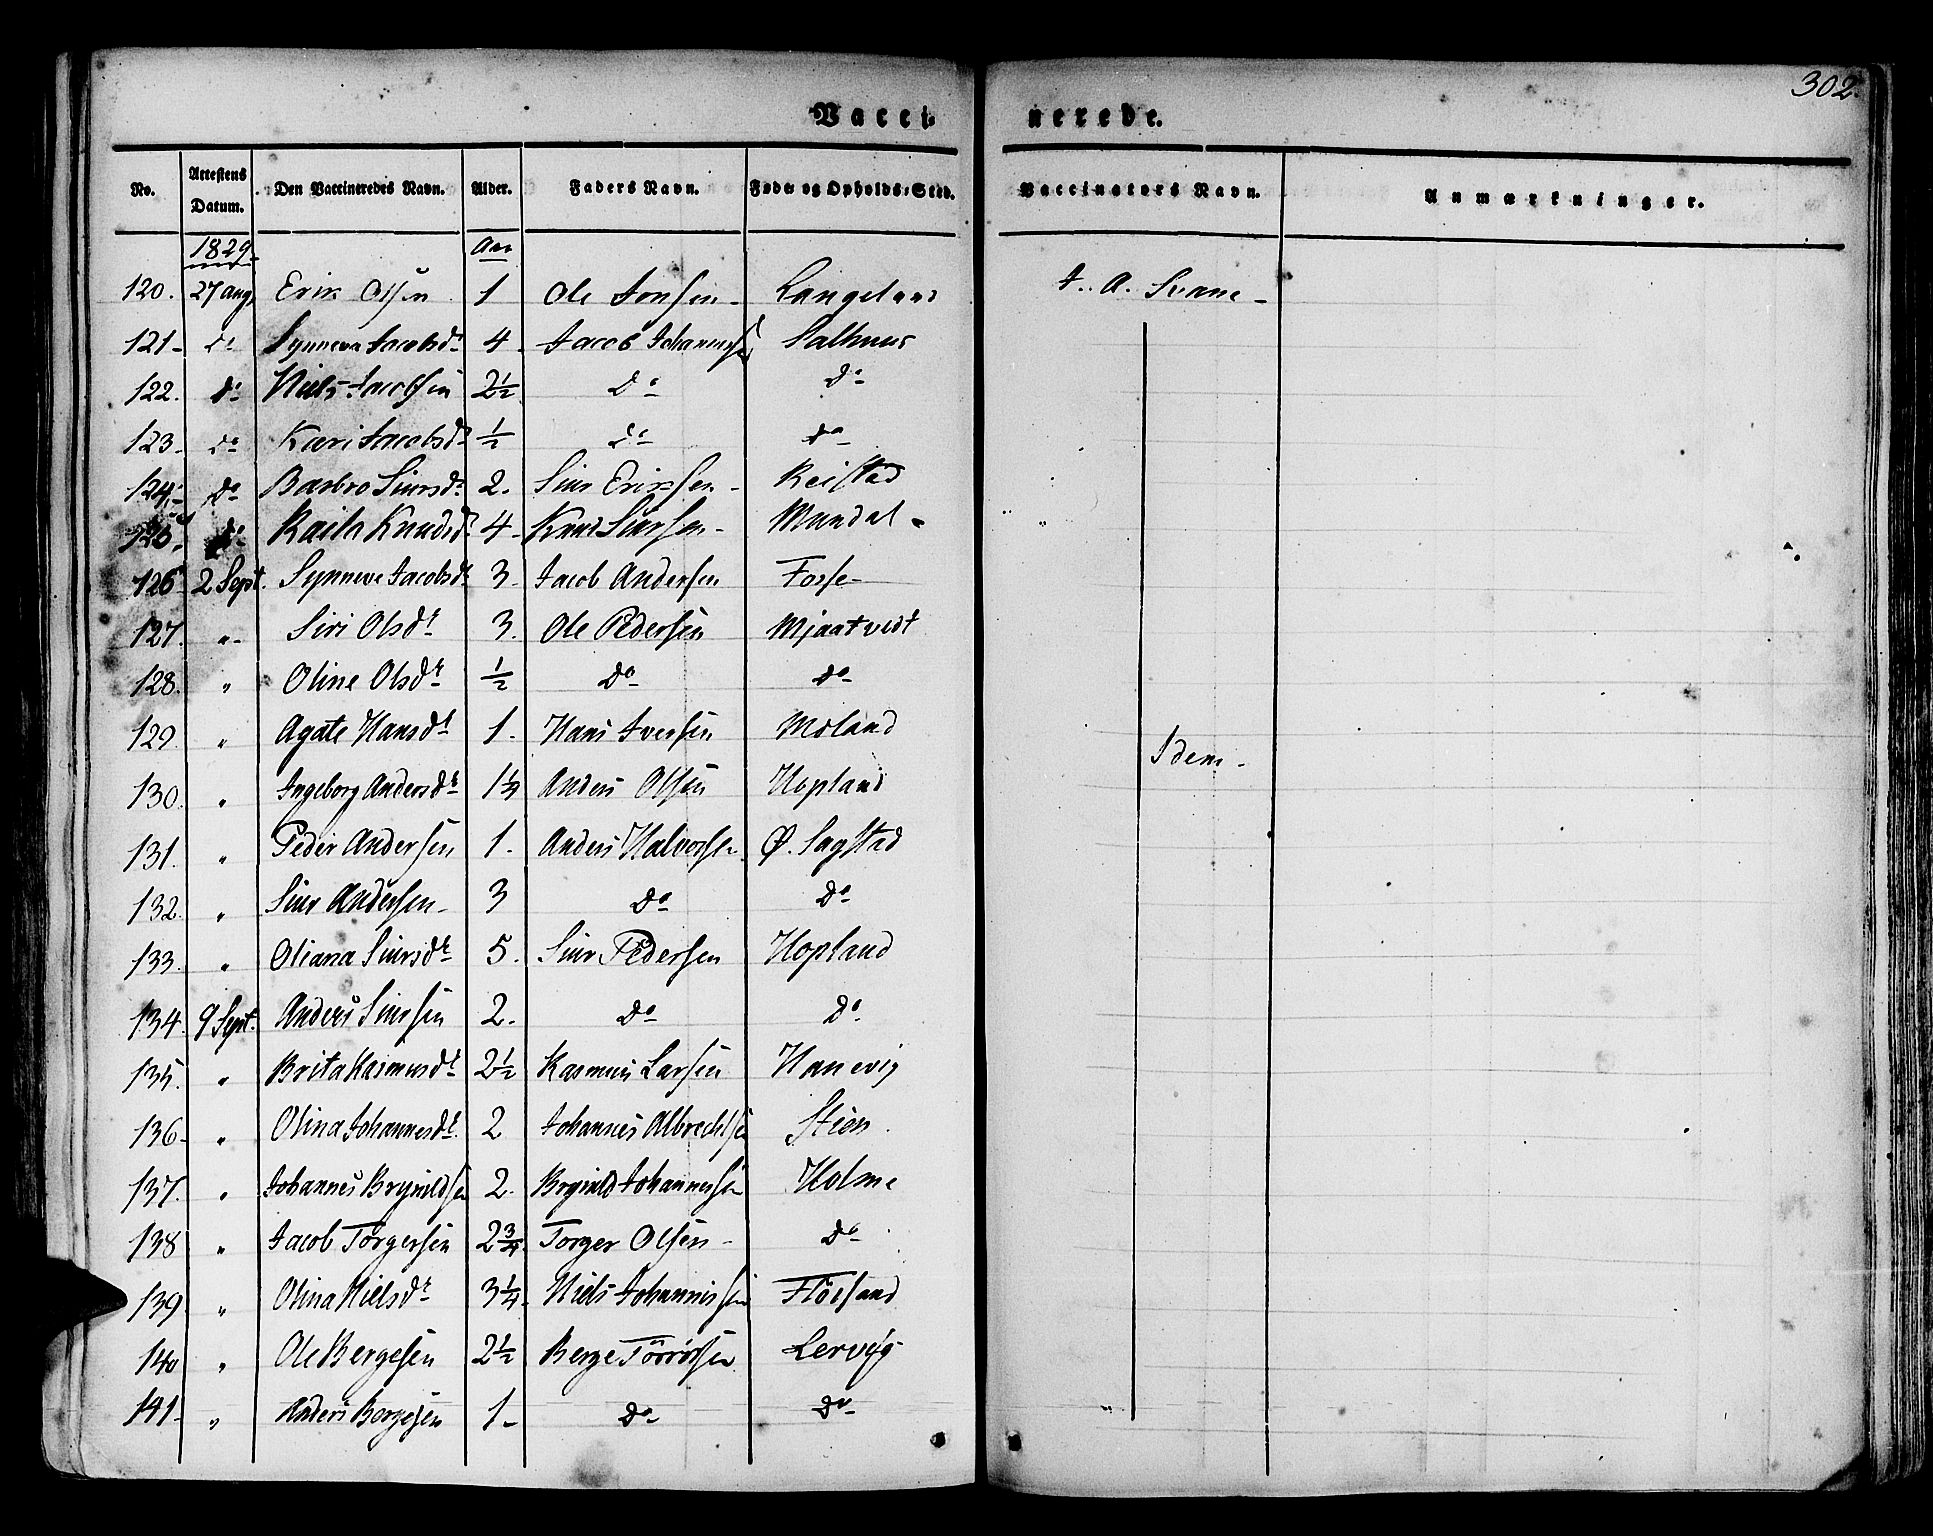 302.
Vacci- nerede.
No. Attestens Datum. Den Vaccineredes Navn. Alder. Faders Navn. Føde og Opholds-Sted. Vaccinators Navn. Anmærkninger.
1829. Aar
120. 27 aug Erik Olsen 1 Ole Jonsen - Langeland J. A. Svane -
121 - do Synneva Jacobsdr 4 Jacob Johannessen Salhuus
122. do Niels Jacobsen 2½ Do Do
123. do Kari Jacobsdr ½ Do do
124. Do Barbro Siursdr 2. Siur Erichsen - Reistad
125. do Raila Knudsdr 4 - Knud Siursen - Mundal -
126 2 Sept. Synneve Jacobsdr 3. Jacob Andersen Fosse -
127. " Siri Olsdr 3. Ole Pedersen Mjaatvedt
128. " Oline Olsdr ½ Do Do
129. " Agate Hansdr 1. Hans Iversen Moland Idem -
130. " Ingeborg Andersdr 1¼ Anders Olsen Hopland
131. " Peder Andersen 1. Anders Halvorsen Ø. Sagstad
132. " Siur Andersen - 3 Do Do
133. " Oliana Siursdr 5. Siur Pedersen Hopland
134. 9 Sept. Anders Siursen 2. Do Do
135. " Brita Rasmusdr 2½ Rasmus Larsen Hanevig
136 - " Olina Johannesdr 2 Johannes Albrechtsen Stien.
137. " Johannes Brynildsen 2. Brynild Johannessen Holme
138 " Jacob Torgersen 2¾ Torger Olsen - Do
139. " Olina Nielsdr 3¼ Niels Johannessen Flöksand
140 " Ole Bergesen 2½ Berge Torrissen Lervig
141 - " Anders Bergesen 1 - Do Do